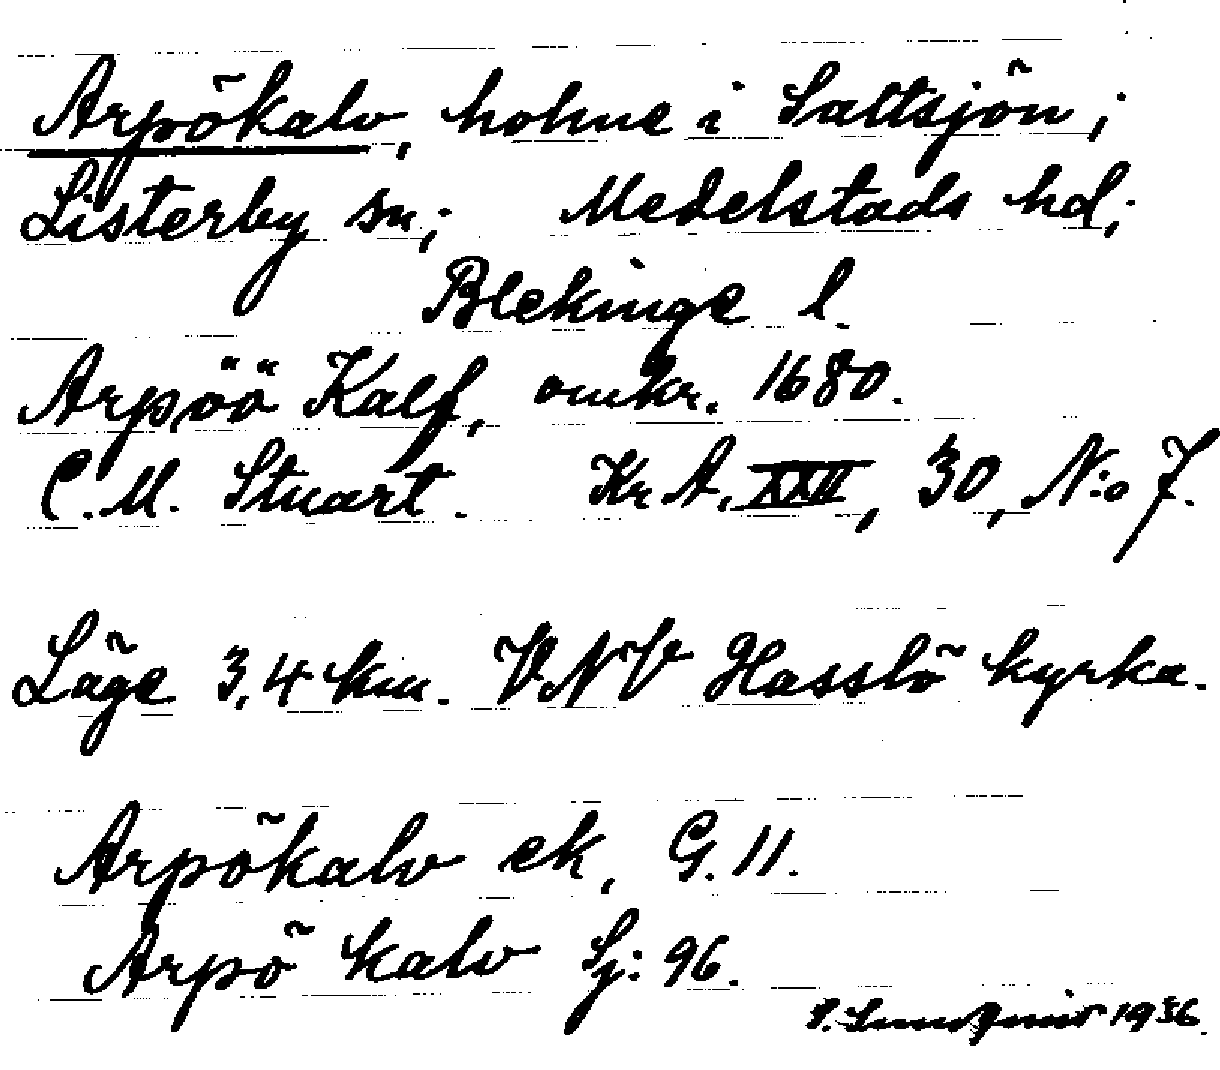 Arpökalv, holme i Saltsjön;
Listerby sn; Medelstads hd;
Blekinge l.
Arpöö Kalf, omkr. 1680.
C.M. Stuart. Kr.A. XXII, 30, N:o 7.
Läge 3,4 km. VNV Hasslö kyrka.
Arpökalv ek, G.11.
Arpö kalv Sj: 96.
1936.